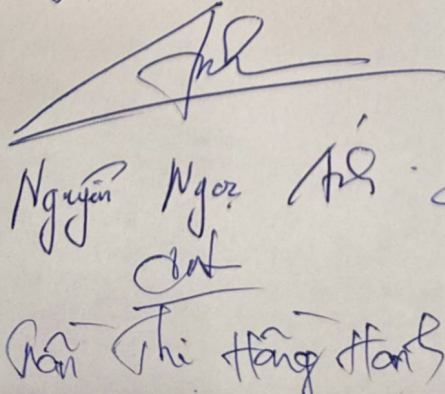 Anh
Nguyễn Ngọc Ánh
Trần Thị Hồng Hanh